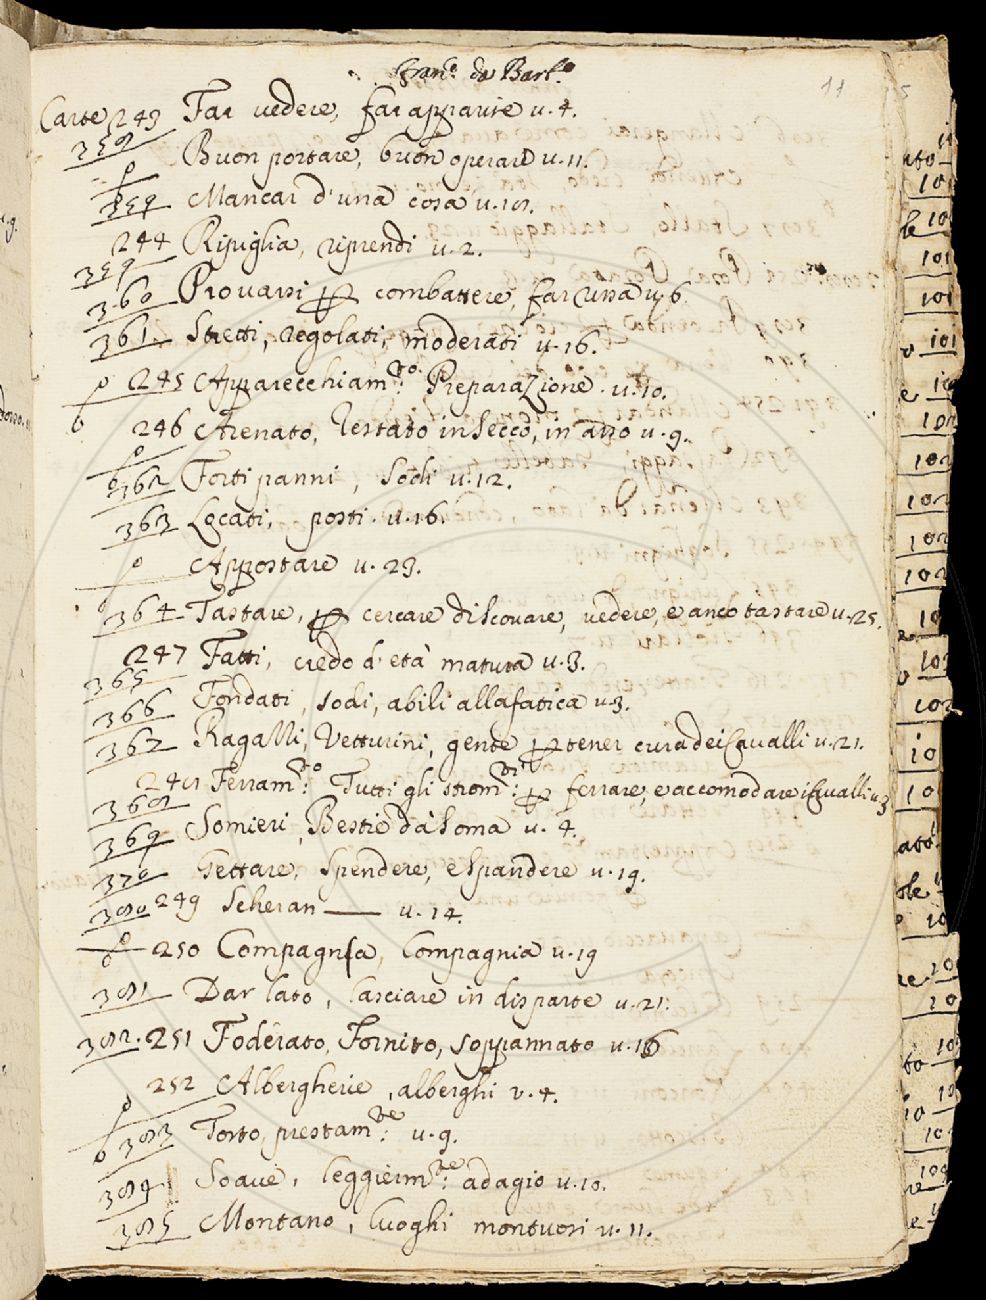 Fran.º da Barb.º
11
Carte 243 Far vedere, far apparire v. 4.
358 Buon portare, buon operare v. 11.
359 Mancar d'una cosa v. 18.
244 Ripiglia, riprendi v. 2.
359
360 Provarsi per combattere, far una v. 6.
361 Stretti, regolati, moderati v. 16.
245 Apparecchiam.to: Preparazione. v. 10.
246 Arenato, restato in secco, in asso v. 9.
362 Forti panni, sodi v. 12.
363 Locati, posti. v. 16.
Appostare v. 23.
364 Tastare, per cercare di scovare, vedere, e anco tastare v. 25.
247 Fatti, credo d'età matura v. 3.
365
366 Fondati, sodi, abili alla fatica v. 3.
367 Ragazzi, Vetturini, gente per tener cura dei Cavalli v. 21.
248 Ferram.to: Tutti gli strom.ti: per ferrare, e accomodare i Cavalli v. 3
368
369 Somieri, Bestie da soma v. 4.
370 Gettare, spendere, e spandere v. 19.
380 249 Scheran —— v. 14.
250 Compagnia, Compagnia v. 19
381 Dar lato, lasciare in disparte v. 21.
382. 251 Foderato, Fornito, soppannato v. 16
252 Albergherie, alberghi v. 4.
383 Torto, prestam.te: v. 9.
384 Soave, leggierm.te: adagio v. 10.
385 Montano, luoghi montuosi v. 11.